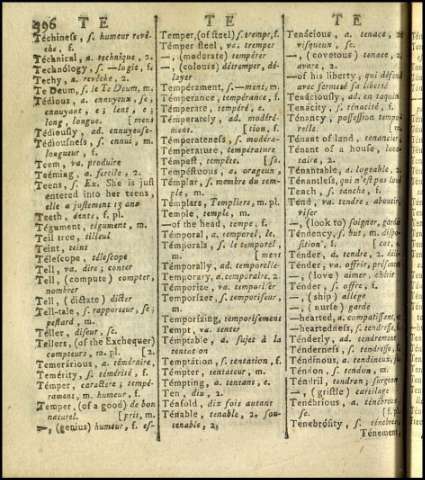 496 T E
T E
T E
Téchiness, s. humeur revê-
che, f.
Téchnical, a. technique, 2.
Technólogy, s. —logie, f.
Techy, a. revêche, 2.
Te Deum, s. le Te Deum, m.
Tédious, a. ennuyeux, se;
ennuyant, e; lent, e;
long, longue. [ment
Tédiously, ad. ennuyeuse-
Tédiousness, s. ennui, m.
longueur, f.
Teem, va. produire
Teéming, a. fertile, 2.
Teens, s. Ex. She is just
entered into her teens,
elle a justement 13 ans
Teeth, dents, f. pl.
Tégument, tégument, m.
Teil tree, tilleul
Teint, teint
Télescope, télescope
Tell, va. dire; conter
Tell, (compute) compter,
nombrer
Tell, (dictate) dicter
Tell-tale, s. rapporteur, se;
m.
Téller, diseur, se.
Tellers, (of the Exchequer)
compteurs, m. pl. [2.
Temerárious, a. téméraire,
Temérity, s. témérité, f.
Témper, caractere; tempé-
rament, m. humeur, f.
Temper, (of a good) de bon
naturel. [prit, m.
—, (genius) humeur, f. es-
Temper, (of steel) s. trempe, f.
Témper steel, va. tremper
—, (moderate) tempérer
—, (colours) détremper, dé-
layer
Tempérament, s. —ment, m.
Témperance, tempérance, f.
Témperate, tempéré, e.
Témperately, ad. modéré-
ment. [tion, f.
Témperateness, s. modéra-
Témperature, température
Témpest, tempête, [s.
Tempéstuous, a. orageux,
Témplar, s. membre du tem-
ple, m.
Témplars, Templiers, m. pl.
Témple, temple, m.
—of the head, tempe, f.
Témporal, a. temporel, le.
Témporals, s. le temporel,
m. [ment
Témporally, ad. temporelle-
Témporary, a. temporaire, 2.
Témporize, va. temporiser
Témporizer, s. temporiseur,
m.
Témporizing, temporisement
Tempt, va. tenter
Témptable, a. sujet à la
tentation
Temptátion, s. tentation, f.
Témpter, tentateur, m.
Témpting, a. tentant, e.
Ten, dix, 2.
Ténfold, dix fois autant
Ténable, tenable, 2. sou-
tenable, 2.
Tenácious, a. tenace, 2.
visqueux, se.
—, (covetous) tenace,
avare, 2.
—of his liberty, qui défend
avec fermeté sa liberté
Tenáciously, ad. en taquin
Tenácity, s. ténacité, f.
Ténancy, possession tempo-
relle. m.
Ténant of land, tenancier,
Ténant of a house, loca-
taire, 2.
Ténantable, a. logeable, 2.
Ténantless, qui n'est pas loué
Tench, s. tanche, f.
Tend, va. tendre, aboutir,
viser
—, (look to) soigner, garder
Téndency, s. but, m. dispo-
sition, f.
Ténder, a. tendre, 2.
Ténder, va. offrir,
—, (love) aimer, chérir
Ténder, s. offre, f.
—, (ship) allege
—, (nurse) garde
—hearted, a. compatissant, e
—heartedness, s. tendresse, f.
Ténderly, ad. tendrement
Ténderness, s. tendresse, f.
Téndinous, a. tendineux,
Téndon, s. tendon, m.
Téndril, tendron; surgeon
—, (gristle) cartilage
Tenébrious, a. ténébreux,
se. [f. pl.
Tenebrósity, s. ténèbres,
Ténement,